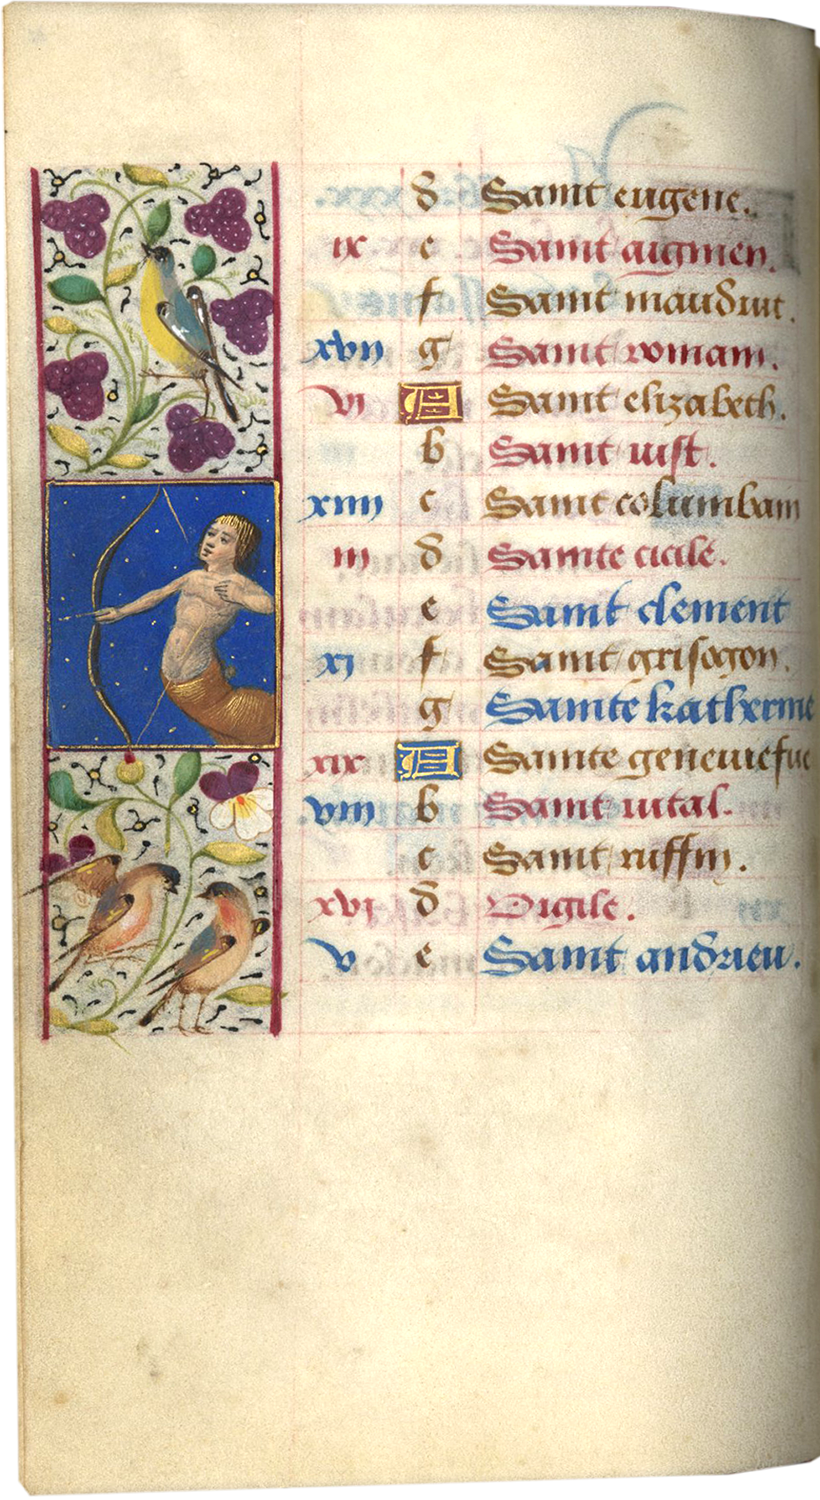 d Saint eugene.
ix e Saint aignien.
f Saint mauduit.
xvii g Saint romain.
vi A Saint elizabeth.
b Saint uist.
xiiii c Saint columbain
iii d Sainte cicile.
e Saint clement
xi f Saint grisogon.
g Sainte katherine
xix A Sainte geneuiefue
viii b Saint uital.
c Saint ruffin.
xvi d Vigile.
v e Saint andrieu.